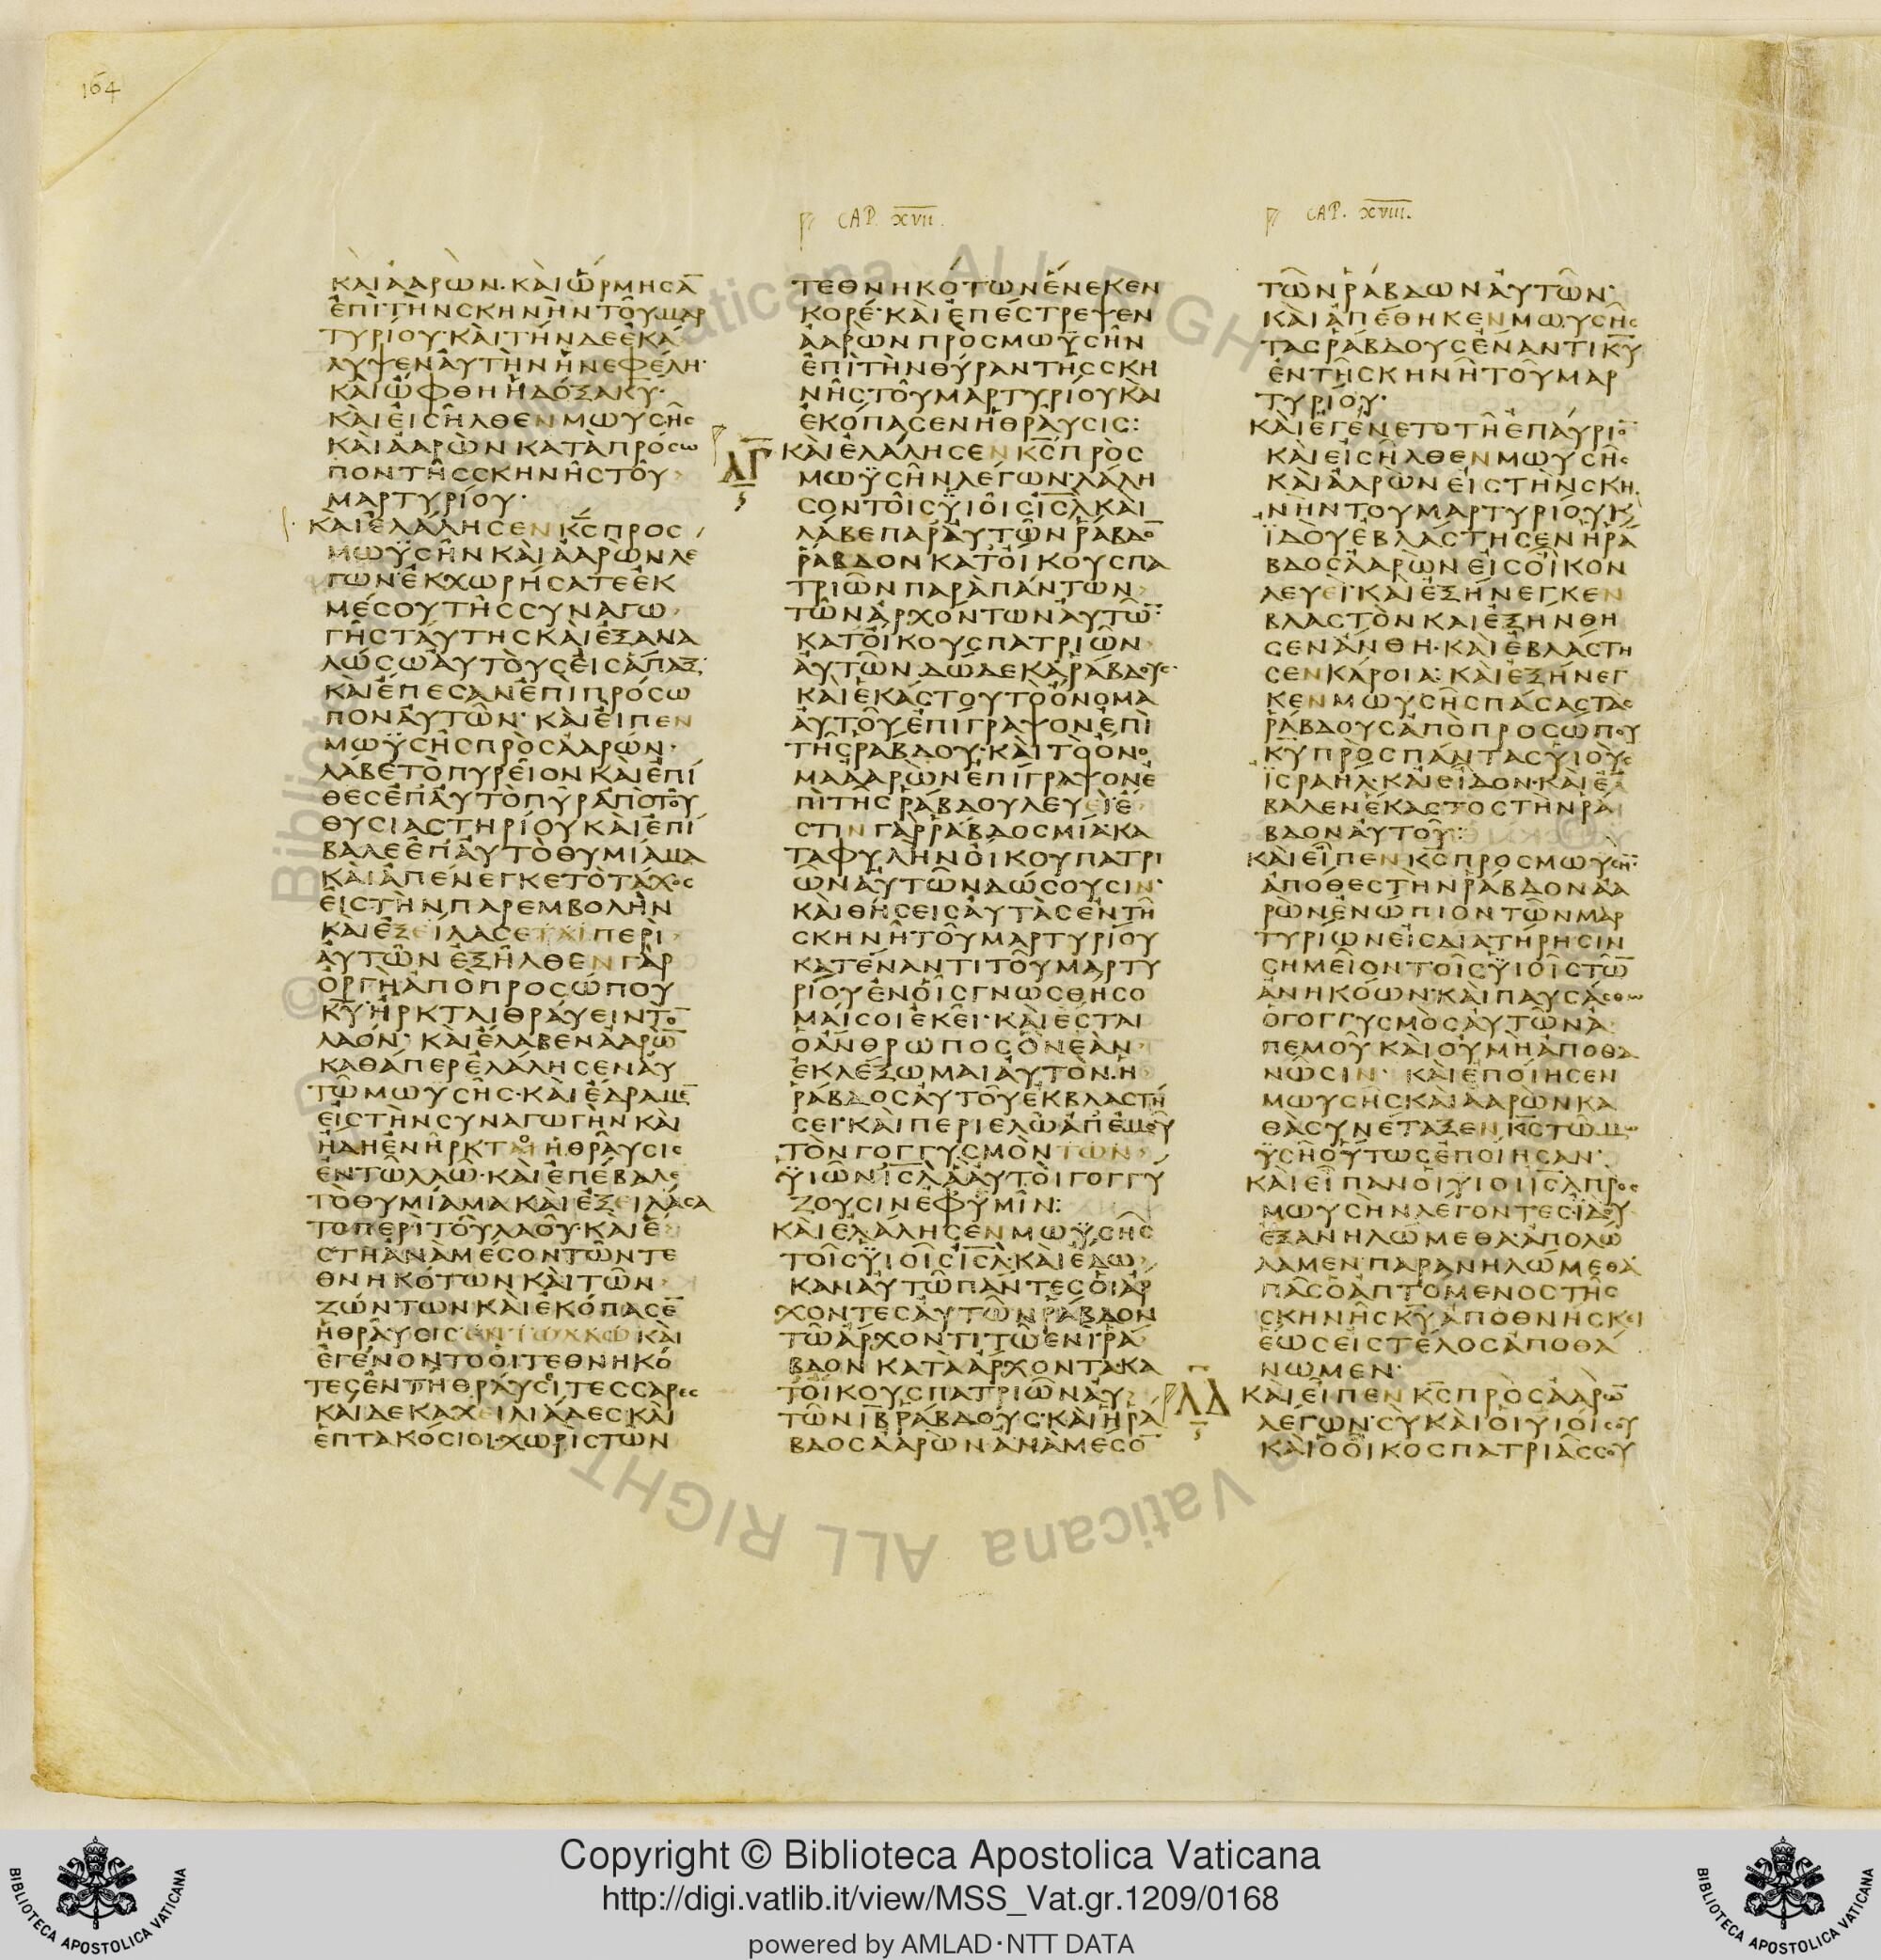 164
CAP. XVII.
CAP. XVIII.
ΚΑΙΑΑΡΩΝ·ΚΑΙΩΡΜΗСΑ̅
ΕΠΙΤΗΝСΚΗΝΗΝΤΟΥΜΑΡ
ΤΥΡΙΟΥ·ΚΑΙΤΗΝΔΕΕΚΑ
ΛΥΨΕΝΑΥΤΗΝΗΝΕΦΕΛΗ·
ΚΑΙΩΦΘΗΗΔΟΞΑΚ̅Υ̅·
ΚΑΙΕΙСΗΛΘΕΝΜΩΥСΗС
ΚΑΙΑΑΡΩΝΚΑΤΑΠΡΟСΩ
ΠΟΝΤΗССΚΗΝΗСΤΟΥ
ΜΑΡΤΥΡΙΟΥ·
ΚΑΙΕΛΑΛΗСΕΝΚ̅С̅ΠΡΟС
ΜΩΫСΗΝΚΑΙΑΑΡΩΝΛΕ
ΓΩΝ·ΕΚΧΩΡΗСΑΤΕΕΚ
ΜΕСΟΥΤΗССΥΝΑΓΩ
ΓΗСΤΑΥΤΗСΚΑΙΕΞΑΝΑ
ΛΩСΩΑΥΤΟΥСΕΙСΑΠΑΞ·
ΚΑΙΕΠΕСΑΝΕΠΙΠΡΟСΩ
ΠΟΝΑΥΤΩΝ· ΚΑΙΕΙΠΕΝ
ΜΩΫСΗСΠΡΟСΑΑΡΩΝ·
ΛΑΒΕΤΟΠΥΡΕΙΟΝΚΑΙΕΠΙ
ΘΕСΕΠΑΥΤΟΠΥΡΑΠΟΤΟΥ
ΘΥСΙΑСΤΗΡΙΟΥΚΑΙΕΠΙ
ΒΑΛΕΕΠΑΥΤΟΘΥΜΙΑΜΑ
ΚΑΙΑΠΕΝΕΓΚΕΤΟΤΑΧΟС
ΕΙСΤΗΝΠΑΡΕΜΒΟΛΗΝ
ΚΑΙΕΞΕΙΛΑСΕ ΠΕΡΙ
ΑΥΤΩΝΕΞΗΛΘΕΝΓΑΡ
ΟΡΓΗΑΠΟΠΡΟСΩΠΟΥ
Κ̅Υ̅·ΗΡΚΤΑΙΘΡΑΥΕΙΝΤΟ̅
ΛΑΟΝ· ΚΑΙΕΛΑΒΕΝΑΑΡΩ̅
ΚΑΘΑΠΕΡΕΛΑΛΗСΕΝΑΥ
ΤΩΜΩΫСΗС·ΚΑΙΕΔΡΑΜΕ̅
ΕΙСΤΗΝСΥΝΑΓΩΓΗΝΚΑΙ
ΗΔΗΕΝΗΡΚΤΟΗΘΡΑΥСΙС
ΕΝΤΩΛΑΩ·ΚΑΙΕΠΕΒΑΛΕ
ΤΟΘΥΜΙΑΜΑΚΑΙΕΞΕΙΛΑСΑ
ΤΟΠΕΡΙΤΟΥΛΑΟΥ·ΚΑΙΕ
СΤΗΑΝΑΜΕСΟΝΤΩΝΤΕ
ΘΝΗΚΟΤΩΝΚΑΙΤΩΝ
ΖΩΝΤΩΝΚΑΙΕΚΟΠΑСΕ̅
ΗΘΡΑΥСΙС ΚΑΙ
ΕΓΕΝΟΝΤΟΟΙΤΕΘΝΗΚΟ
ΤΕСΕΝΤΗΘΡΑΥСΙΤΕССΑΡΕС
ΚΑΙΔΕΚΑΧΕΙΛΙΑΔΕСΚΑΙ
ΕΠΤΑΚΟСΙΟΙ·ΧΩΡΙСΤΩΝ
ΤΕΘΝΗΚΟΤΩΝΕΝΕΚΕΝ
ΚΟΡΕ·ΚΑΙΕΠΕСΤΡΕΨΕΝ
ΑΑΡΩΝΠΡΟСΜΩΫСΗΝ
ΕΠΙΤΗΝΘΥΡΑΝΤΗССΚΗ
ΝΗСΤΟΥΜΑΡΤΥΡΙΟΥΚΑΙ
ΕΚΟΠΑСΕΝΗΘΡΑΥСΙС:
ΛΓ ΚΑΙΕΛΑΛΗСΕΝΚ̅С̅ΠΡΟС
ΜΩΫСΗΝΛΕΓΩΝ·ΛΑΛΗ
СΟΝΤΟΙСΫΙΟΙСΙ̅С̅Λ̅ΚΑΙ
ΛΑΒΕΠΑΡΑΥΤΩΝΡΑΒΔΟ̅
ΡΑΒΔΟΝΚΑΤΟΙΚΟΥСΠΑ
ΤΡΙΩΝΠΑΡΑΠΑΝΤΩΝ
ΤΩΝΑΡΧΟΝΤΩΝΑΥΤΩ̅·
ΚΑΤΟΙΚΟΥСΠΑΤΡΙΩΝ
ΑΥΤΩΝΔΩΔΕΚΑΡΑΒΔΟΥС·
ΚΑΙΕΚΑСΤΟΥΤΟΟΝΟΜΑ
ΑΥΤΟΥΕΠΙΓΡΑΨΟΝΕΠΙ
ΤΗСΡΑΒΔΟΥ·ΚΑΙΤΟΟΝΟ
ΜΑΑΑΡΩΝΕΠΙΓΡΑΨΟΝΕ
ΠΙΤΗСΡΑΒΔΟΥΛΕΥΕΙ·Ε
СΤΙΝΓΑΡΡΑΒΔΟСΜΙΑ·ΚΑ
ΤΑΦΥΛΗΝΟΙΚΟΥΠΑΤΡΙ
ΩΝΑΥΤΩΝΔΩСΟΥСΙΝ·
ΚΑΙΘΗСΕΙСΑΥΤΑСΕΝΤΗ
СΚΗΝΗΤΟΥΜΑΡΤΥΡΙΟΥ
ΚΑΤΕΝΑΝΤΙΤΟΥΜΑΡΤΥ
ΡΙΟΥΕΝΟΙСΓΝΩСΘΗСΟ
ΜΑΙСΟΙΕΚΕΙ·ΚΑΙΕСΤΑΙ
ΟΑΝΘΡΩΠΟСΟΝΕΑΝ
ΕΚΛΕΞΩΜΑΙΑΥΤΟΝ·Η
ΡΑΒΔΟСΑΥΤΟΥΕΚΒΛΑСΤΗ
СΕΙ·ΚΑΙΠΕΡΙΕΛΩΑΠΕΜΟΥ
ΤΟΝΓΟΓΓΥСΜΟΝΤΩΝ
ΫΙΩΝΙ̅С̅Λ̅ΑΑΥΤΟΙΓΟΓΓΥ
ΖΟΥСΙΝΕΦΥΜΙΝ:
ΚΑΙΕΛΑΛΗСΕΝΜΩΫСΗС
ΤΟΙСΫΙΟΙСΙ̅С̅Λ̅·ΚΑΙΕΔΩ
ΚΑΝΑΥΤΩΠΑΝΤΕСΟΙΑΡ
ΧΟΝΤΕСΑΥΤΩΝΡΑΒΔΟΝ
ΤΩΑΡΧΟΝΤΙΤΩΕΝΙΡΑ
ΒΔΟΝΚΑΤΑΑΡΧΟΝΤΑ·ΚΑ
ΤΟΙΚΟΥСΠΑΤΡΙΩΝΑΥ
ΤΩΝΙ̅Β̅ΡΑΒΔΟΥС·ΚΑΙΗΡΑ
ΒΔΟСΑΑΡΩΝΑΝΑΜΕСΟ̅
ΤΩΝΡΑΒΔΩΝΑΥΤΩΝ·
ΚΑΙΑΠΕΘΗΚΕΝΜΩΥСΗС
ΤΑСΡΑΒΔΟΥСΕΝΑΝΤΙΚ̅Υ̅
ΕΝΤΗСΚΗΝΗΤΟΥΜΑΡ
ΤΥΡΙΟΥ·
ΚΑΙΕΓΕΝΕΤΟΤΗΕΠΑΥΡΙΟ̅
ΚΑΙΕΙСΗΛΘΕΝΜΩΥСΗС
ΚΑΙΑΑΡΩΝΕΙСΤΗΝСΚΗ
ΝΗΝΤΟΥΜΑΡΤΥΡΙΟΥΚ
ΪΔΟΥΕΒΛΑСΤΗСΕΝΗΡΑ
ΒΔΟСΑΑΡΩΝΕΙСΟΙΚΟΝ
ΛΕΥΕΙ·ΚΑΙΕΞΗΝΕΓΚΕΝ
ΒΛΑСΤΟΝΚΑΙΕΞΗΝΘΗ
СΕΝΑΝΘΗ·ΚΑΙΕΒΛΑСΤΗ
СΕΝΚΑΡΟΙΑ·ΚΑΙΕΞΗΝΕΓ
ΚΕΝΜΩΥСΗСΠΑСΑСΤΑС
ΡΑΒΔΟΥСΑΠΟΠΡΟСΩΠΟΥ
Κ̅Υ̅ΠΡΟСΠΑΝΤΑСΥΙΟΥС
ΪСΡΑΗΛ·ΚΑΙΕΙΔΟΝ·ΚΑΙΕ
ΒΑΛΕΝΕΚΑСΤΟСΤΗΝΡΑ
ΒΔΟΝΑΥΤΟΥ:
ΚΑΙΕΙΠΕΝΚ̅С̅ΠΡΟСΜΩΥСΗ̅
ΑΠΟΘΕСΤΗΝΡΑΒΔΟΝΑΑ
ΡΩΝΕΝΩΠΙΟΝΤΩΝΜΑΡ
ΤΥΡΙΩΝΕΙСΔΙΑΤΗΡΗСΙΝ
СΗΜΕΙΟΝΤΟΙСΫΙΟΙСΤΩ̅
ΑΝΗΚΟΩΝ·ΚΑΙΠΑΥСΑСΘΩ
ΟΓΟΓΓΥСΜΟСΑΥΤΩΝΑ
ΠΕΜΟΥΚΑΙΟΥΜΗΑΠΟΘΑ
ΝΩСΙΝ· ΚΑΙΕΠΟΙΗСΕΝ
ΜΩΥСΗСΚΑΙΑΑΡΩΝΚΑ
ΘΑСΥΝΕΤΑΞΕΝΚ̅С̅ΤΩΜΩ
ΫСΗΟΥΤΩСΕΠΟΙΗСΑΝ·
ΚΑΙΕΙΠΑΝΟΙΥΙΟΙΙ̅С̅Λ̅ΠΡΟС
ΜΩΥСΗΝΛΕΓΟΝΤΕСΪΔΟΥ
ΕΞΑΝΗΛΩΜΕΘΑ·ΑΠΟΛΩ
ΛΑΜΕΝ·ΠΑΡΑΝΗΛΩΜΕΘΑ·
ΠΑСΟΑΠΤΟΜΕΝΟСΤΗС
СΚΗΝΗСΚ̅Υ̅ΑΠΟΘΝΗСΚΕΙ
ΕΩСΕΙСΤΕΛΟСΑΠΟΘΑ
ΝΩΜΕΝ·
ΛΔ ΚΑΙΕΙΠΕΝΚ̅С̅ΠΡΟСΑΑΡΩ̅
ΛΕΓΩΝ·СΥΚΑΙΟΙΥΙΟΙСΟΥ
ΚΑΙΟΟΙΚΟСΠΑΤΡΙΑССΟΥ
Copyright © Biblioteca Apostolica Vaticana
http://digi.vatlib.it/view/MSS_Vat.gr.1209/0168
powered by AMLAD·NTT DATA
BIBLIOTECA APOSTOLICA VATICANA
BIBLIOTECA APOSTOLICA VATICANA